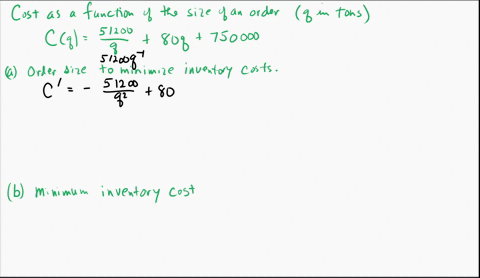 Cost as a function of the size of an order (q in tons)
C(q) = 51200/q + 80q + 750000
51200q⁻¹
(a) Order size to minimize inventory costs.
C' = - 51200/q² + 80
(b) Minimum inventory cost